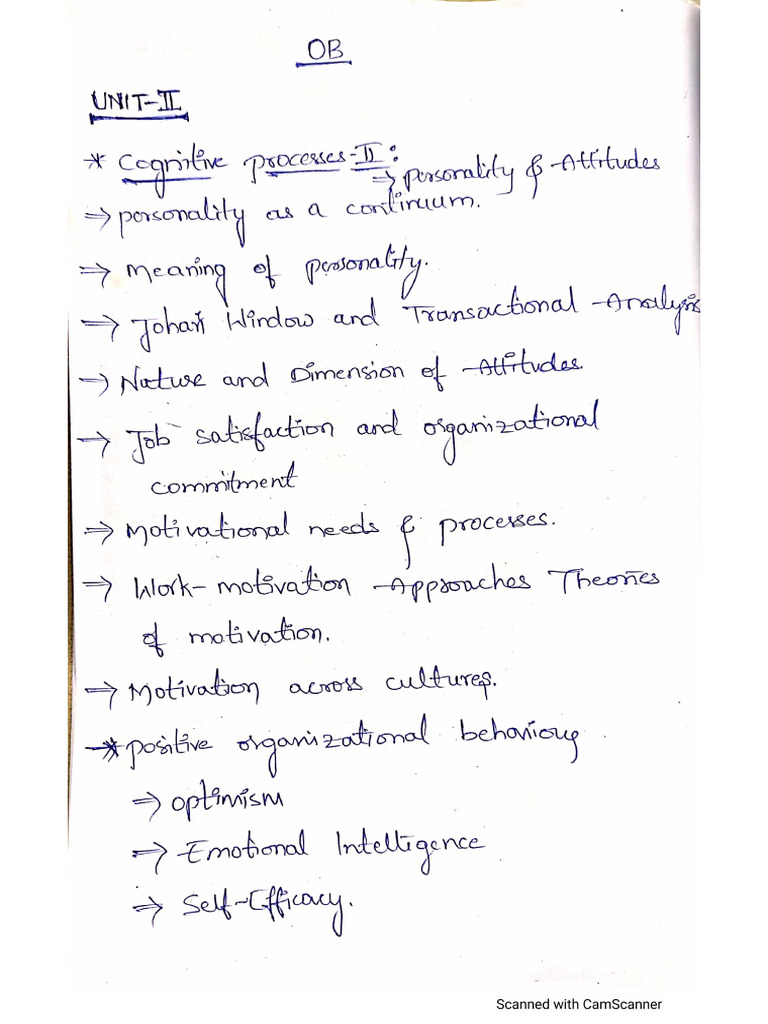 OB
UNIT-II
* Cognitive processes-II:
⇒ personality & Attitudes
⇒ personality as a continuum.
⇒ Meaning of personality.
⇒ Johari Window and Transactional Analysis
→ Nature and Dimension of Attitudes.
→ Job satisfaction and organizational
commitment
⇒ Motivational needs & processes.
⇒ Work-motivation Approaches Theories
of motivation.
→ Motivation across cultures.
* positive organizational behaviour
⇒ optimism
⇒ Emotional Intelligence
⇒ Self-Efficacy.
Scanned with CamScanner